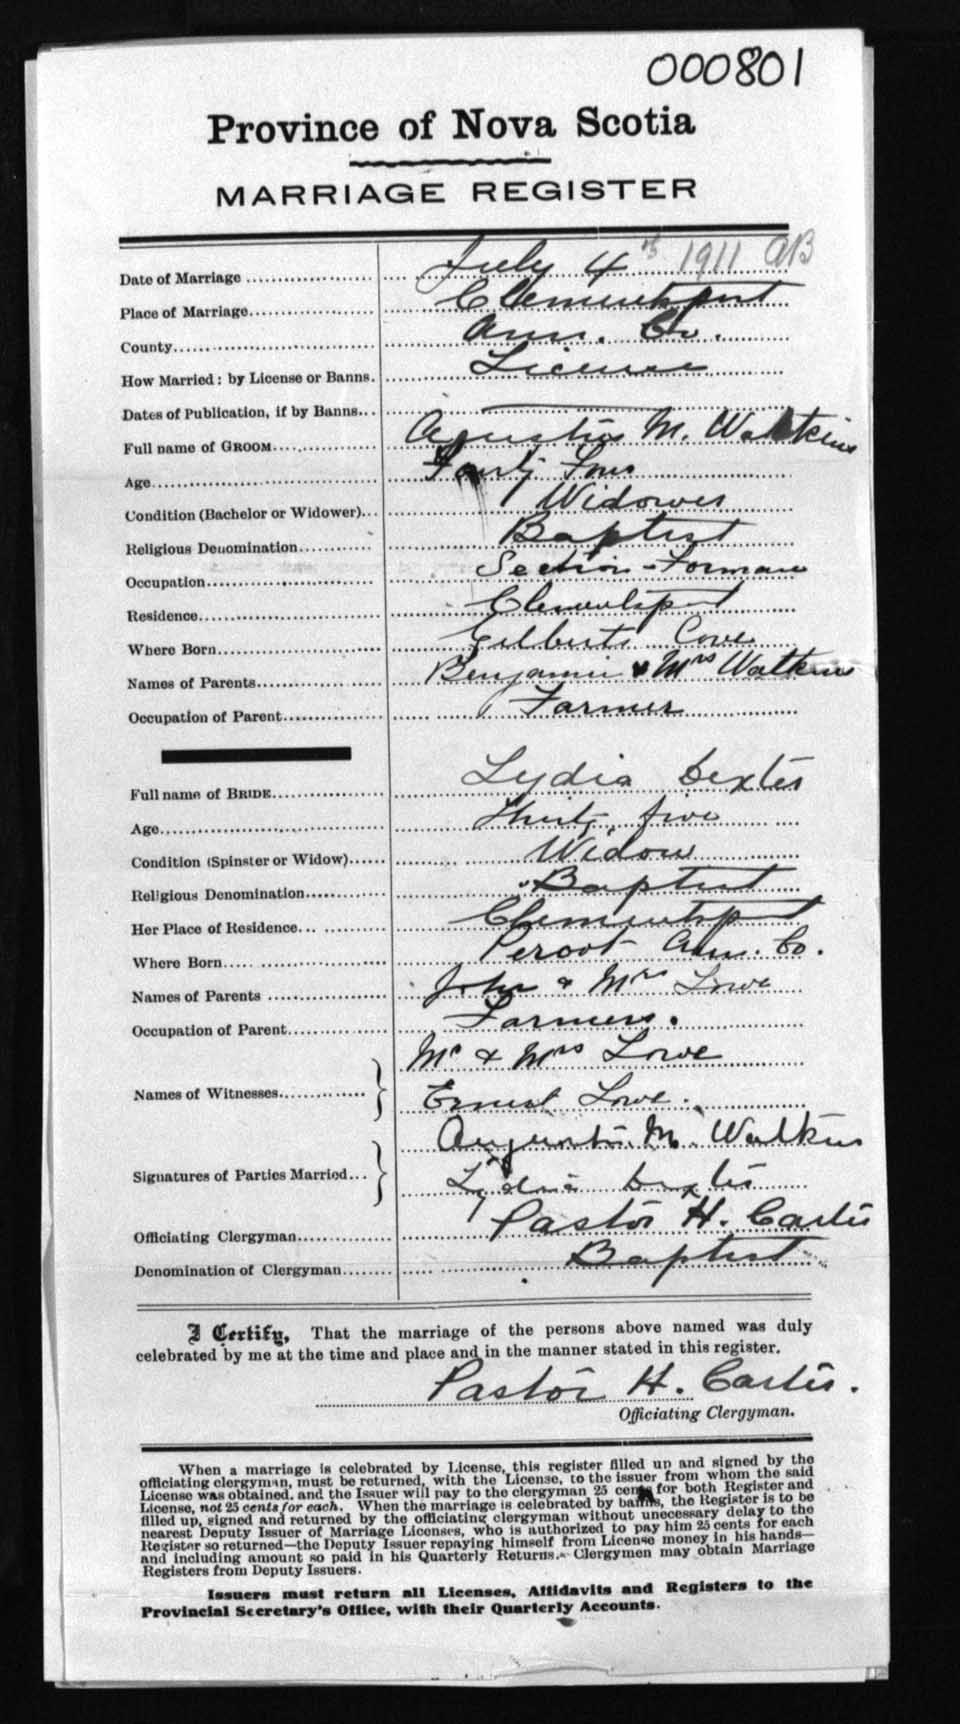 000801
Province of Nova Scotia
MARRIAGE REGISTER
Date of Marriage July 4th 1911 AB
Place of Marriage Clementsport
County Ann. Co.
How Married: by License or Banns. License
Dates of Publication, if by Banns
Full name of GROOM M. Watkins
Age Four
Condition (Bachelor or Widower) Widower
Religious Denomination Baptist
Occupation Section-Forman
Residence Clementsport
Where Born Gilberts Cove
Names of Parents Benjamin & Mrs Watkins
Occupation of Parent Farmer
Full name of BRIDE Lydia Dexter
Age Thirty five
Condition (Spinster or Widow) Widow
Religious Denomination Baptist
Her Place of Residence Clementsport
Where Born Peroot Ann. Co.
Names of Parents John & Mrs Lowe
Occupation of Parent Farmers.
Mr & Mrs Lowe
Names of Witnesses
Ernest Lowe.
M. Watkins
Signatures of Parties Married
Lydia Dexter
Officiating Clergyman Pastor H. Carter
Denomination of Clergyman Baptist
I Certify, That the marriage of the persons above named was duly
celebrated by me at the time and place and in the manner stated in this register.
Pastor H. Carter.
Officiating Clergyman.
When a marriage is celebrated by License, this register filled up and signed by the
officiating clergyman, must be returned, with the License, to the issuer from whom the said
License was obtained, and the Issuer will pay to the clergyman 25 cents for both Register and
License, not 25 cents for each. When the marriage is celebrated by banns, the Register is to be
filled up, signed and returned by the officiating clergyman without unecessary delay to the
nearest Deputy Issuer of Marriage Licenses, who is authorized to pay him 25 cents for each
Register so returned—the Deputy Issuer repaying himself from License money in his hands—
and including amount so paid in his Quarterly Returns. Clergymen may obtain Marriage
Registers from Deputy Issuers.
Issuers must return all Licenses, Affidavits and Registers to the
Provincial Secretary's Office, with their Quarterly Accounts.